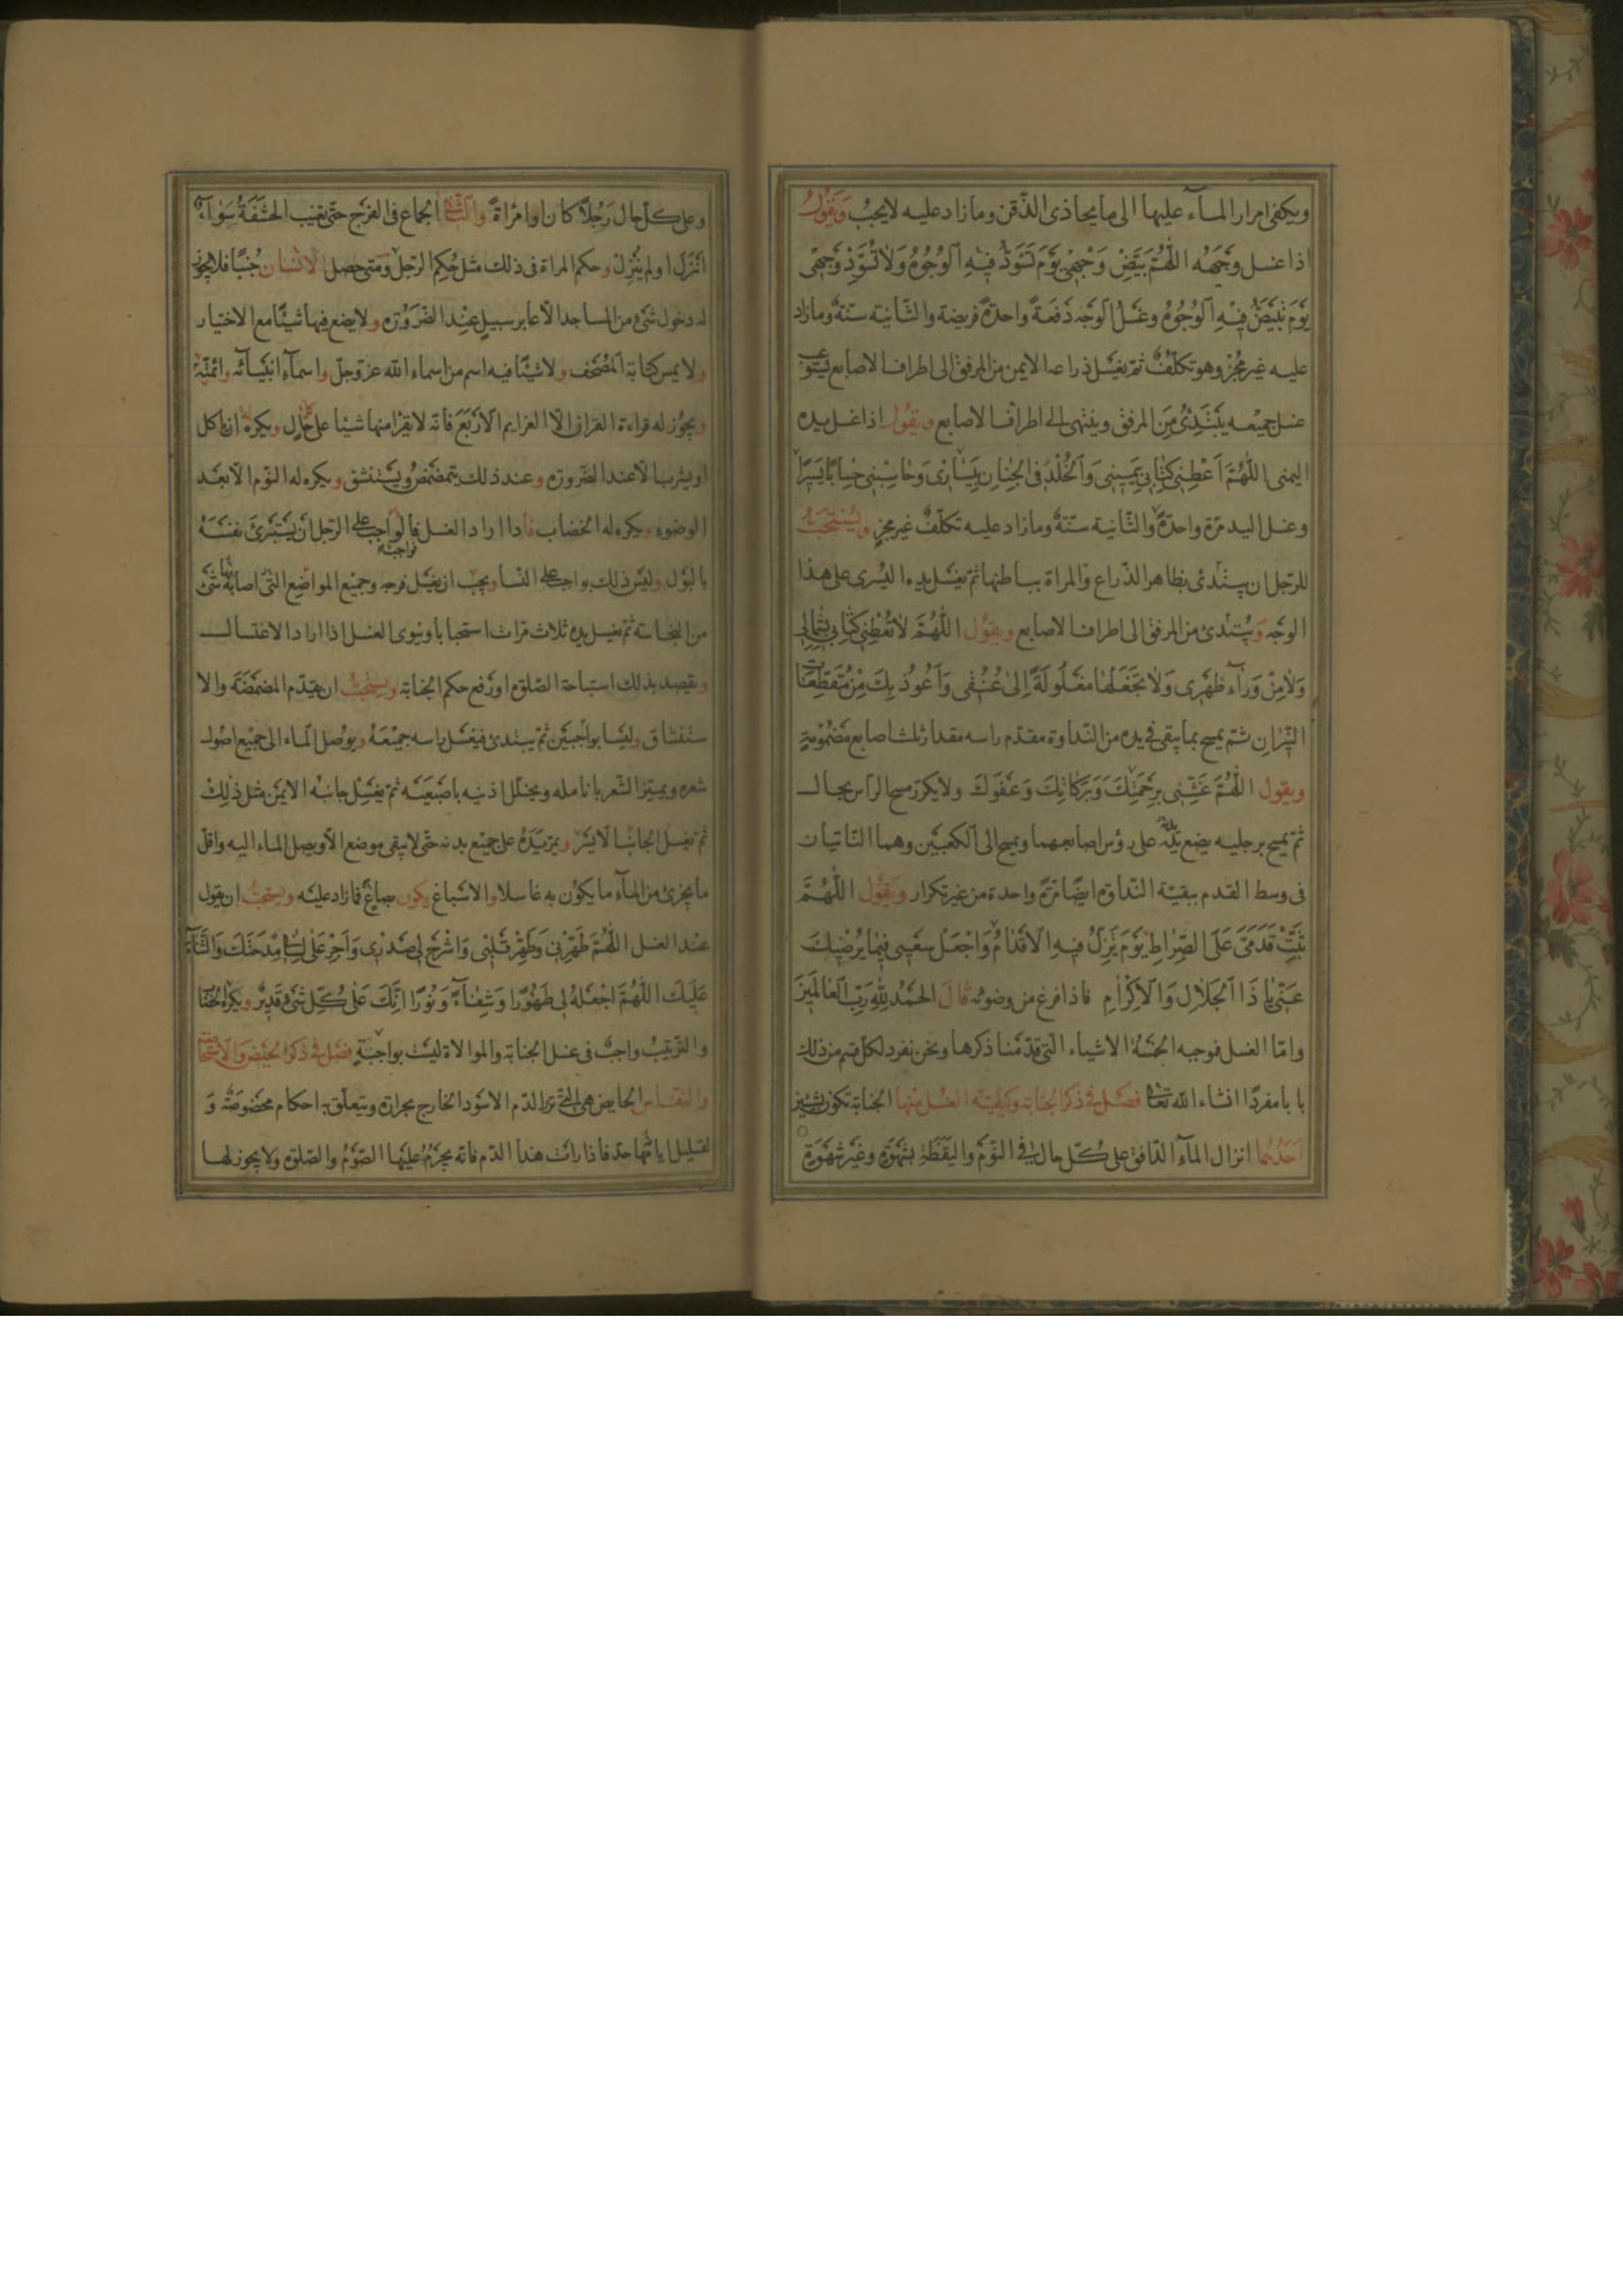 ويكفى امرار المآء عليها الى ما يحاذى الذّقن وما زاد عليه لا يجب وَيَقُولُ
اذا غسل وجهه اللّٰهُمَّ بَيِّضْ وَجْهِى يَوْمَ تَسَوَدُّ فِيْهِ الْوُجُوهُ وَلَا تُسَوِّدْ وَجْهِى
يَوْمَ تَبْيَضُّ فِيْهِ الْوُجُوهُ وغَسْلُ الْوَجْهِ دَفعَةً واحدةً فريضة والثّانية سنّة وما زاد
عليه غير مُجزٍ وهو تكلّفٌ ثمّ يغسل ذراعه الايمن من المرفق الى اطراف الاصابع يستوعب
غسل جميعه يَبْتَدِئُ مِنَ المرفق وينتهى الى اطراف الاصابع ويقُولُ اذا غسل يده
اليمنى اللّٰهُمَّ اَعْطِنِى كِتَابِى بِيَمِيْنِى وَالْخُلْدَ فِى الْجِنَانِ بِيَسَارِى وَحَاسِبْنِى حِسَابًا يَسِيْرًا
وغسل اليد مرّة واحدةً والثّانية سنّةٌ وما زاد عليه تكلّفٌ غير مجزٍ ويُسْتَحَبُّ
للرّجل ان يبتدئ بظاهر الذّراع والمراة بباطنها ثمّ يغسل يده اليسرى على هذا
الوجه وَيَبتدئ من المرفق الى اطراف الاصابع ويقول اللّٰهُمَّ لَا تُعْطِنِى كِتَابِى بِشِمَالِى
وَلَا مِنْ وَرَآءِ ظَهْرِى وَلَا تَجْعَلْهَا مَغْلُولَةً اِلٰى عُنُقِى وَاَعُوذُ بِكَ مِنْ مُقَطِّعَاتِ
النِّيْرَانِ ثمّ يمسح بما يبقى فى يده من النّداوة مقدّم راسه مقدار ثلث اصابع مَضْمُوْمَةٍ
ويقول اللّٰهُمَّ غَشِّنِى بِرَحْمَتِكَ وَبَرَكَاتِكَ وَعَفْوِكَ ولا يكرّر مسح الرّاس بحال
ثمّ يمسح برجليه يضع يديه على رؤس اصابعهما ويمسح الى الكعبين وهما النّاتيان
فى وسط القدم ببقيّة النّداوة ايضًا مَرّةً واحدة من غير تكرار وَيَقُولُ اللّٰهُمَّ
ثَبِّتْ قَدَمَىَّ عَلَى الصِّرَاطِ يَوْمَ تَزِلُّ فِيهِ الْاَقْدَامُ وَاجْعَلْ سَعْيِى فِيْمَا يُرْضِيْكَ
عَنِّى يَا ذَا الْجَلَالِ وَالْاِكْرَامِ فاذا فرغ من وضوئه قَالَ الْحَمْدُ لِلّٰهِ رَبِّ الْعَالَمِيْنَ
وامّا الغسل فموجبه الخمسَةُ الاشياء الّتى قدّمنا ذكرها ونحن نفرد لكلّ قسم من ذلك
بابا مفردًا انشاء اللّه تعالى فصل فى ذكر الجنابة وكيفيّة الغسل منها الجنابة تكون بشيئين
اَحَدُهُمَا انزال المآء الدّافق على كلّ حال فى النّوْمِ واليَقَظَةِ بِشَهْوَةٍ وغَيْرِ شَهْوَةٍ
وعلى كلّ حال رَجُلًا كان او امْرَاةً والثّانى الجماع فى الفرْج حتّى تغيب الحَشَفَةُ سَوَآءٌ
اَنْزَلَ او لم يُنْزِلْ وحكم المراة فى ذلك مثل حُكم الرّجل ومَتى حصل الانسان جُنُبًا فلا يجوز
له دخول شىء من المساجد الّا عابر سبيلٍ عِنْدَ الضّرُوْرَة ولا يضع فيها شيئًا مع الاختيار
ولا يمس كتابة المُصْحَف ولا شيئًا فيه اسم من اسماء اللّه عزّ وجلّ واسمآء انْبِيَآئِه وائمّته
ويجُوز له قراءة القران الّا العزايم الاَرْبَعَ فانّه لا يَقْرَا منها شيئا على كلّ حَالٍ ويكره له ان ياكل
او يشرب الّا عند الضّرورة وعند ذلك يتمضْمَضُ ويَسْتَنْشق ويكره له النّوم الّا بعْدَ
الوضوء ويكره له الخضاب فاذا اراد الغسل فالواجب على الرّجل اَنْ يَسْتَبْرِئَ نفسَهُ
بالبَوْل وليسَ ذلك بواجب على النّساء ويجب ان يغسل فرجه وجميْع المواضع الّتى اصابَهَا شَئٌ
من النجاسة ثمّ يغسل يده ثلاث مرّات استحبابا وينوى الغسل اذا اراد الاغتسال
ويقصد بذلك استباحة الصّلوة او رَفع حكم الجنابة ويستحبّ ان يقدّم المضمَضَة والا
ستنشاق وليسا بواجبَيْن ثمّ يبتدئ فيغسل راسه جميْعَهُ ويُوْصل المآء الى جميْع اصُول
شعره ويميّز الشّعر بانامله ويخلّل اذنيه باصبَعَيْه ثمّ يغسل جانبهُ الايمن مثل ذٰلِكَ
ثمّ يغسل الجانب الايسر ويمرّ يَدَهُ على جميْع بدنه حتّى لا يبقى موضع الّا ويصل الماء اليه واقلّ
ما يجزئ من المآء ما يكُوْن به غاسلا والاسْباغ يكون بصاعٍ فما زاد عليْه ويستحبّ ان يقول
عنْد الغسل اللّٰهُمَّ طَهِّرْنِى وَطَهِّرْ قَلْبِى وَاشْرَحْ لِى صَدْرِى وَاَجْرِ عَلٰى لِسَانِى مِدْحَتَكَ وَالثَّنَآءَ
عَلَيْكَ اللّٰهُمَّ اجْعَلْهُ لِى طَهُوْرًا وَشِفَآءً وَنُوْرًا اِنَّكَ عَلٰى كُلِّ شَىْءٍ قَدِيْرٌ
والتّرْتيْبُ واجبٌ فى غسل الجنابة والموالاة ليست بواجبَةٍ فصل فى ذكر الحيض والاستحاضة
والنّفاس الحايض هى الّتى ترى الدّم الاسْوَد الخارج بحرارة ويتعلّق به احكام مخصُوصَةٌ وَ
لقليل ايّامها حدّ فاذا راَتْ هذا الدّم فانّه يحْرُمُ عليها الصّوْمُ والصّلوة ولا يجوز لها